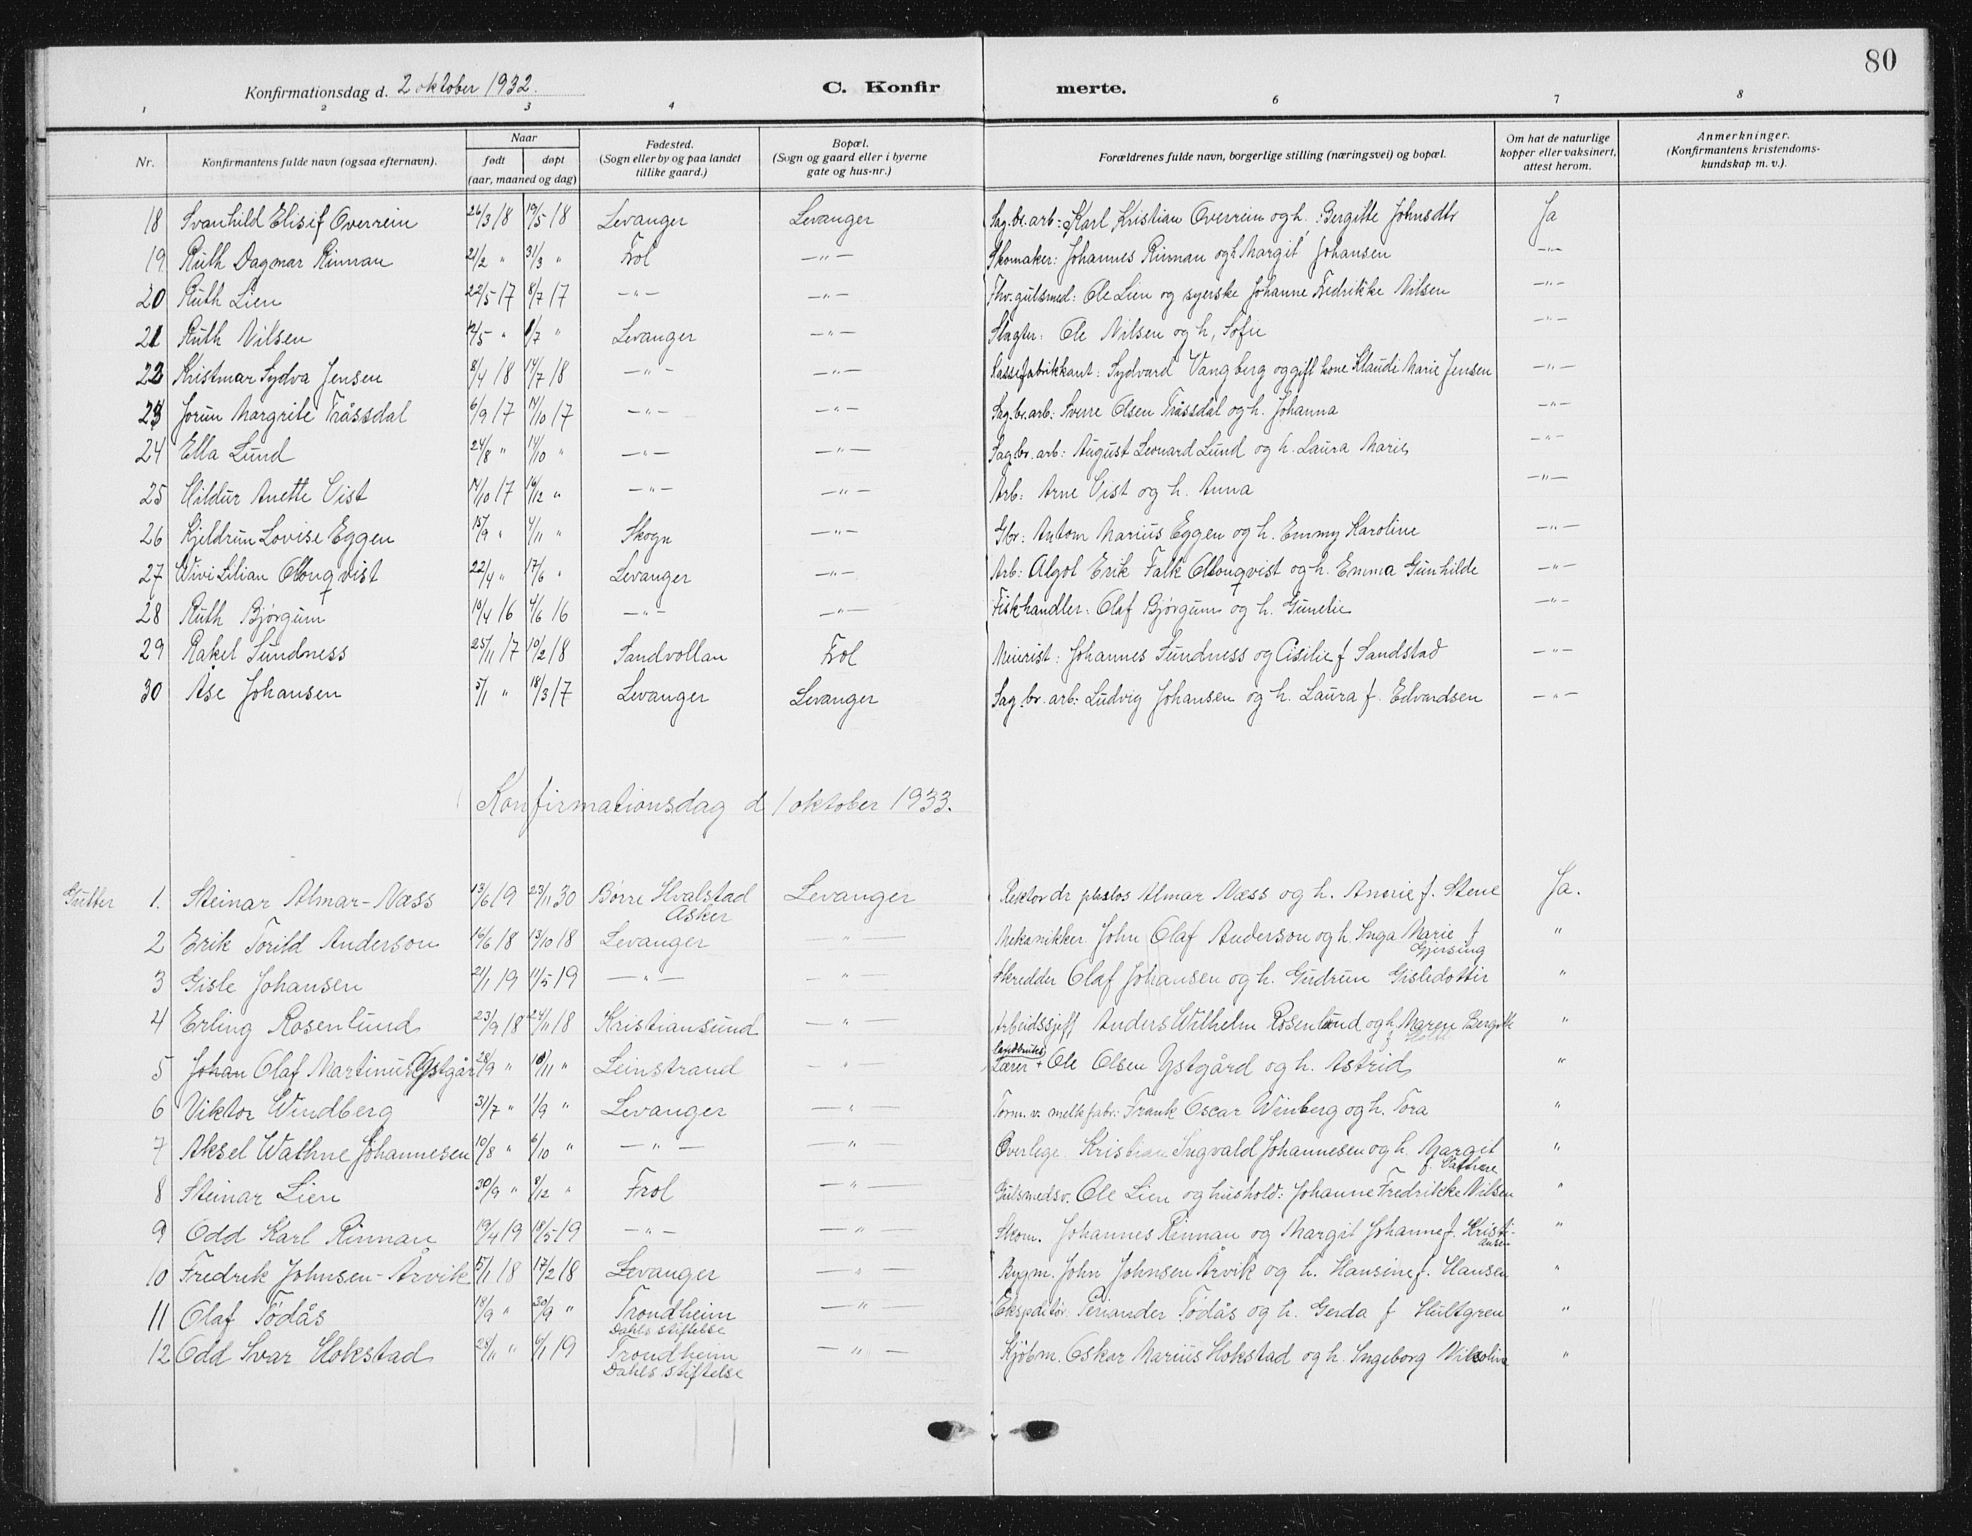 80
Konfirmationsdag d. 2 oktober 1932. C. Konfirmerte.
1 2 3 4 6 7 8
Nr. Konfirmantens fulde navn (ogsaa efternavn). Naar født døpt (aar, maaned og dag) Fødested. (Sogn eller by og paa landet tillike gaard.) Bopæl. (Sogn og gaard eller i byerne gate og hus-nr.) Forældrenes fulde navn, borgerlige stilling (næringsvei) og bopæl. Om hat de naturlige kopper eller vaksinert, attest herom. Anmerkninger. (Konfirmantens kristendomskundskap m. v.).
18 Svanhild Elisif Overrein 26/3 18 19/5 18 Levanger Levanger Sag.br.arb: Karl Kristian Overrein og h. Bergitte Johnsdtr Ja
19 Ruth Dagmar Rinnan 21/2 " 31/3 " Frol —"— Skomaker: Johannes Rinnan og h Margit Johansen —"—
20 Ruth Lien 22/5 17 8/7 17 —"— —"— Fhv. gulsmed: Ole Lien og syerske Johanne Fredrikke Nilsen —"—
21 Ruth Nilsen 12/5 " 1/7 " Levanger —"— Slagter: Ole Nilsen og h, Sofie —"—
22 Kristmar Sydva Jensen 8/4 18 14/7 18 —"— —"— Kassefabrikkant: Sydvard Vangberg og gift kone Klaudi Marie Jensen —"—
23 Jorun Margrete Tråssdal 6/9 17 14/10 17 —"— —"— Sag.br.arb: Sverre Olsen Tråssdal og h. Johanna —"—
24 Ella Lund 24/8 " 14/10 " —"— —"— Sag.br.arb: August Leonard Lund og h. Laura Marie —"—
25 Hildur Anette Vist 14/10 17 16/12 " —"— —"— Arb: Arne Vist og h. Anna —"—
26 Kjeldrun Lovise Eggen 15/9 " 4/11 " Skogn —"— Gbr: Antom Marius Eggen og h. Emmy Karoline —"—
27 Wivi Lilian Ollonqvist 22/4 " 17/6 " Levanger —"— Arb: Algot Erik Falk Ollonqvist og h. Emma Gunhilde —"—
28 Ruth Bjørgum 10/4 16 4/6 16 —"— —"— Fiskhandler: Olaf Bjørgum og h. Gunelie —"—
29 Rakel Sundness 25/11 17 10/2 18 Sandvollan Frol Meierist: Johannes Sundness og Cisilie f Sandstad —"—
30 Åse Johansen 5/1 " 18/3 17 Levanger Levanger Sag.br.arb: Ludvig Johansen og h. Laura f. Edvardsen —"—
Konfirmationsdag d 1 oktober 1933.
Gutter 1. Steinar Almar-Næss 13/6 19 23/11 30 Børre Hvalstad Asker Levanger Rektor dr philos Almar Næss og h. f. Stene Ja.
2 Erik Torild Anderson 16/6 18 13/10 18 Levanger —"— Mekanikker John Olaf Anderson og h. Inga Marie f Gjersing "
3 Gisle Johansen 21/1 19 11/5 19 —"— —"— Skredder Olaf Johansen og h. Gudrun Gisledottir "
4 Erling Rosenlund 23/9 18 24/11 18 Kristiansund —"— Arbeidssjeff Anders Wilhelm Rosenlund og h. Maren Bergith f Holt "
5 Johan Olaf Martinus Ystgår 28/9 " 10/11 " Leinstrand —"— landbruks Lærer + Ole Olsen Ystgård og h. Astrid "
6 Viktor Windberg 31/7 " 1/9 " Levanger —"— Form. v. melkfabr: Frank Oscar Winberg og h. Tora "
7 Aksel Wathne Johannesen 10/8 " 6/10 " —"— —"— Overlege Kristian Ingvald Johannesen og h. Margit f. Vathne "
8 Steinar Lien 30/9 " 8/12 " Frol —"— Gulsmedsv. Ole Lien og hushold: Johanne Fredrikke Nilsen "
9 Odd Karl Rinnan 19/4 19 18/5 19 —"— —"— Skom. Johannes Rinnan og Margit Johanne f. Kristiansen "
10 Fredrik Johnsen-Årvik 5/1 18 17/2 18 Levanger —"— Bygm. John Johnsen Årvik og h. Hansine f. Hansen "
11 Olaf Tødås 18/9 " 30/9 " Trondheim Dahls stiftelse —"— Ekspeditør Periander Tødås og h. Gerda f Hultgren "
12 Odd Ivar Hokstad 28/11 " 6/1 19 Trondheim Dahls stiftelse —"— Kjøbm. Oskar Marius Hokstad og h. Ingeborg Nikoline "